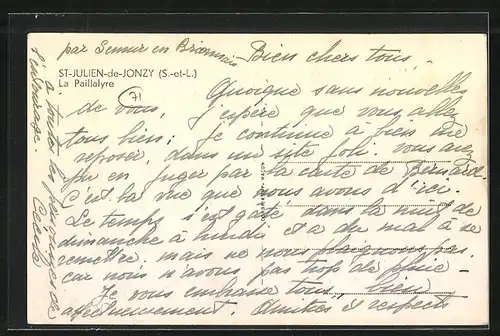 par Semur en Brionnais
ST-JULIEN-de-JONZY (S.-et-L.)
La Paillalyre
71
Bien chers tous -
Quoique sans nouvelles
de vous, j'espère que vous allez
tous bien; Je continue à bien me
reposer, dans un site joli. vous avez
pu en juger par la carte de Bernard.
C'est la vue que nous avons d'ici.
Le temps s'est gâté dans la nuit de
dimanche à lundi et a du mal à se
remettre. mais ne nous plaignons pas
car nous n'avons pas trop de pluie -
Je vous embrasse tous, bien
affectueusement. Amitiés et respects
à toutes les personnes de
l'entourage.